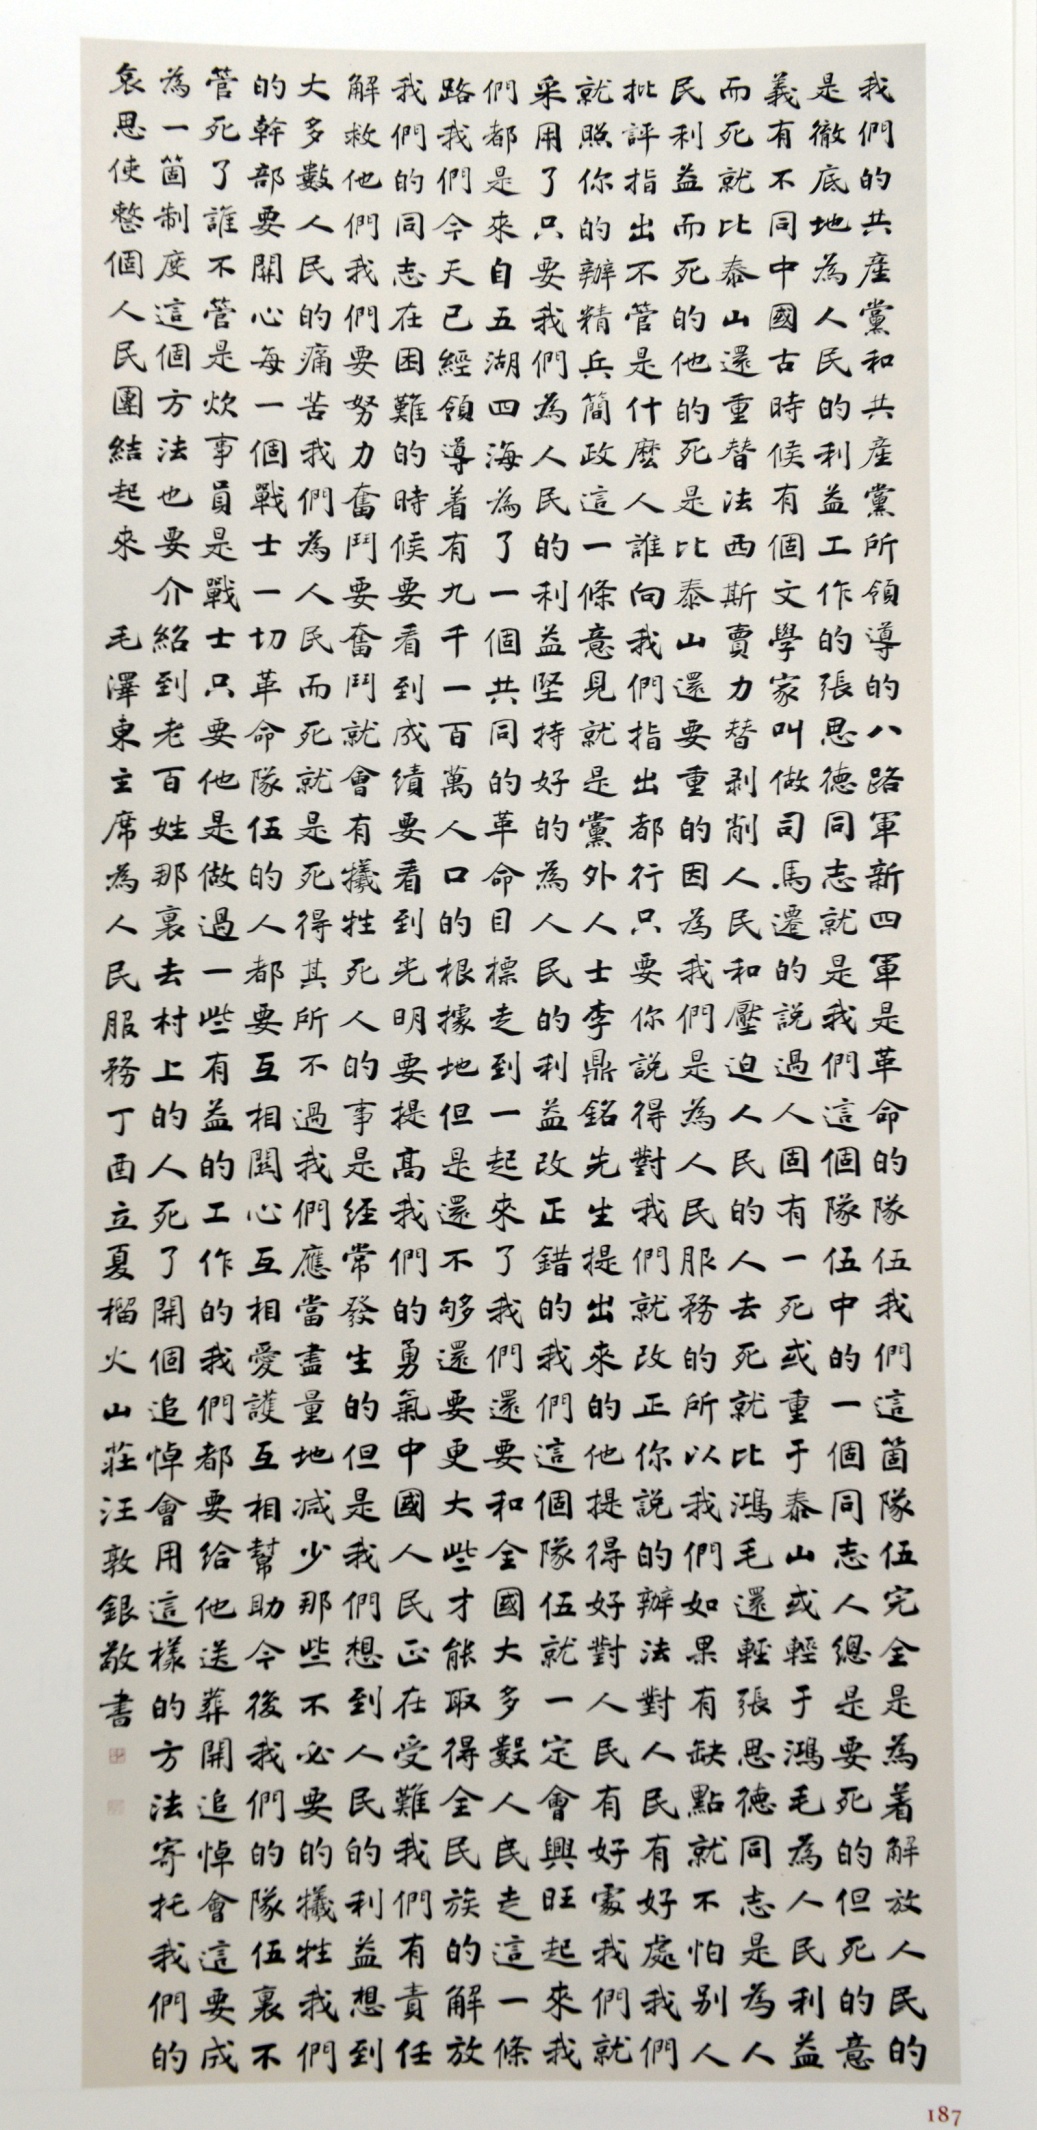 我們的共產黨和共產黨所領導的八路軍新四軍是革命的隊伍我們這箇隊伍完全是為着解放人民的
是徹底地為人民的利益工作的張思德同志就是我們這個隊伍中的一個同志人總是要死的但死的意
義有不同中國古時候有個文學家叫做司馬遷的說過人固有一死或重于泰山或輕于鴻毛為人民利益
而死就比泰山還重替法西斯賣力替剥削人民和壓迫人民的人去死就比鴻毛還輕張思德同志是為人
民利益而死的他的死是比泰山還要重的因為我們是為人民服務的所以我們如果有缺點就不怕别人
批評指出不管是什麼人誰向我們指出都行只要你說得對我們就改正你說的辦法對人民有好處我們
就照你的辦精兵簡政這一條意見就是黨外人士李鼎銘先生提出來的他提得好對人民有好處我們就
采用了只要我們為人民的利益堅持好的為人民的利益改正錯的我們這個隊伍就一定會興旺起來我
們都是來自五湖四海為了一個共同的革命目標走到一起來了我們還要和全國大多數人民走這一條
路我們今天已經領導着有九千一百萬人口的根據地但是還不够還要更大些才能取得全民族的解放
我們的同志在困難的時候要看到成績要看到光明要提高我們的勇氣中國人民正在受難我們有責任
解救他們我們要努力奮鬥要奮鬥就會有犧牲死人的事是经常發生的但是我們想到人民的利益想到
大多數人民的痛苦我們為人民而死就是死得其所不過我們應當盡量地减少那些不必要的犧牲我們
的幹部要關心每一個戰士一切革命隊伍的人都要互相關心互相愛護互相幫助今後我們的隊伍裏不
管死了誰不管是炊事員是戰士只要他是做過一些有益的工作的我們都要给他送葬開追悼會這要成
為一箇制度這個方法也要介紹到老百姓那裏去村上的人死了開個追悼會用這樣的方法寄托我們的
哀思使整個人民團結起來 毛澤東主席為人民服務丁酉立夏榴火山莊汪敦銀敬書
187